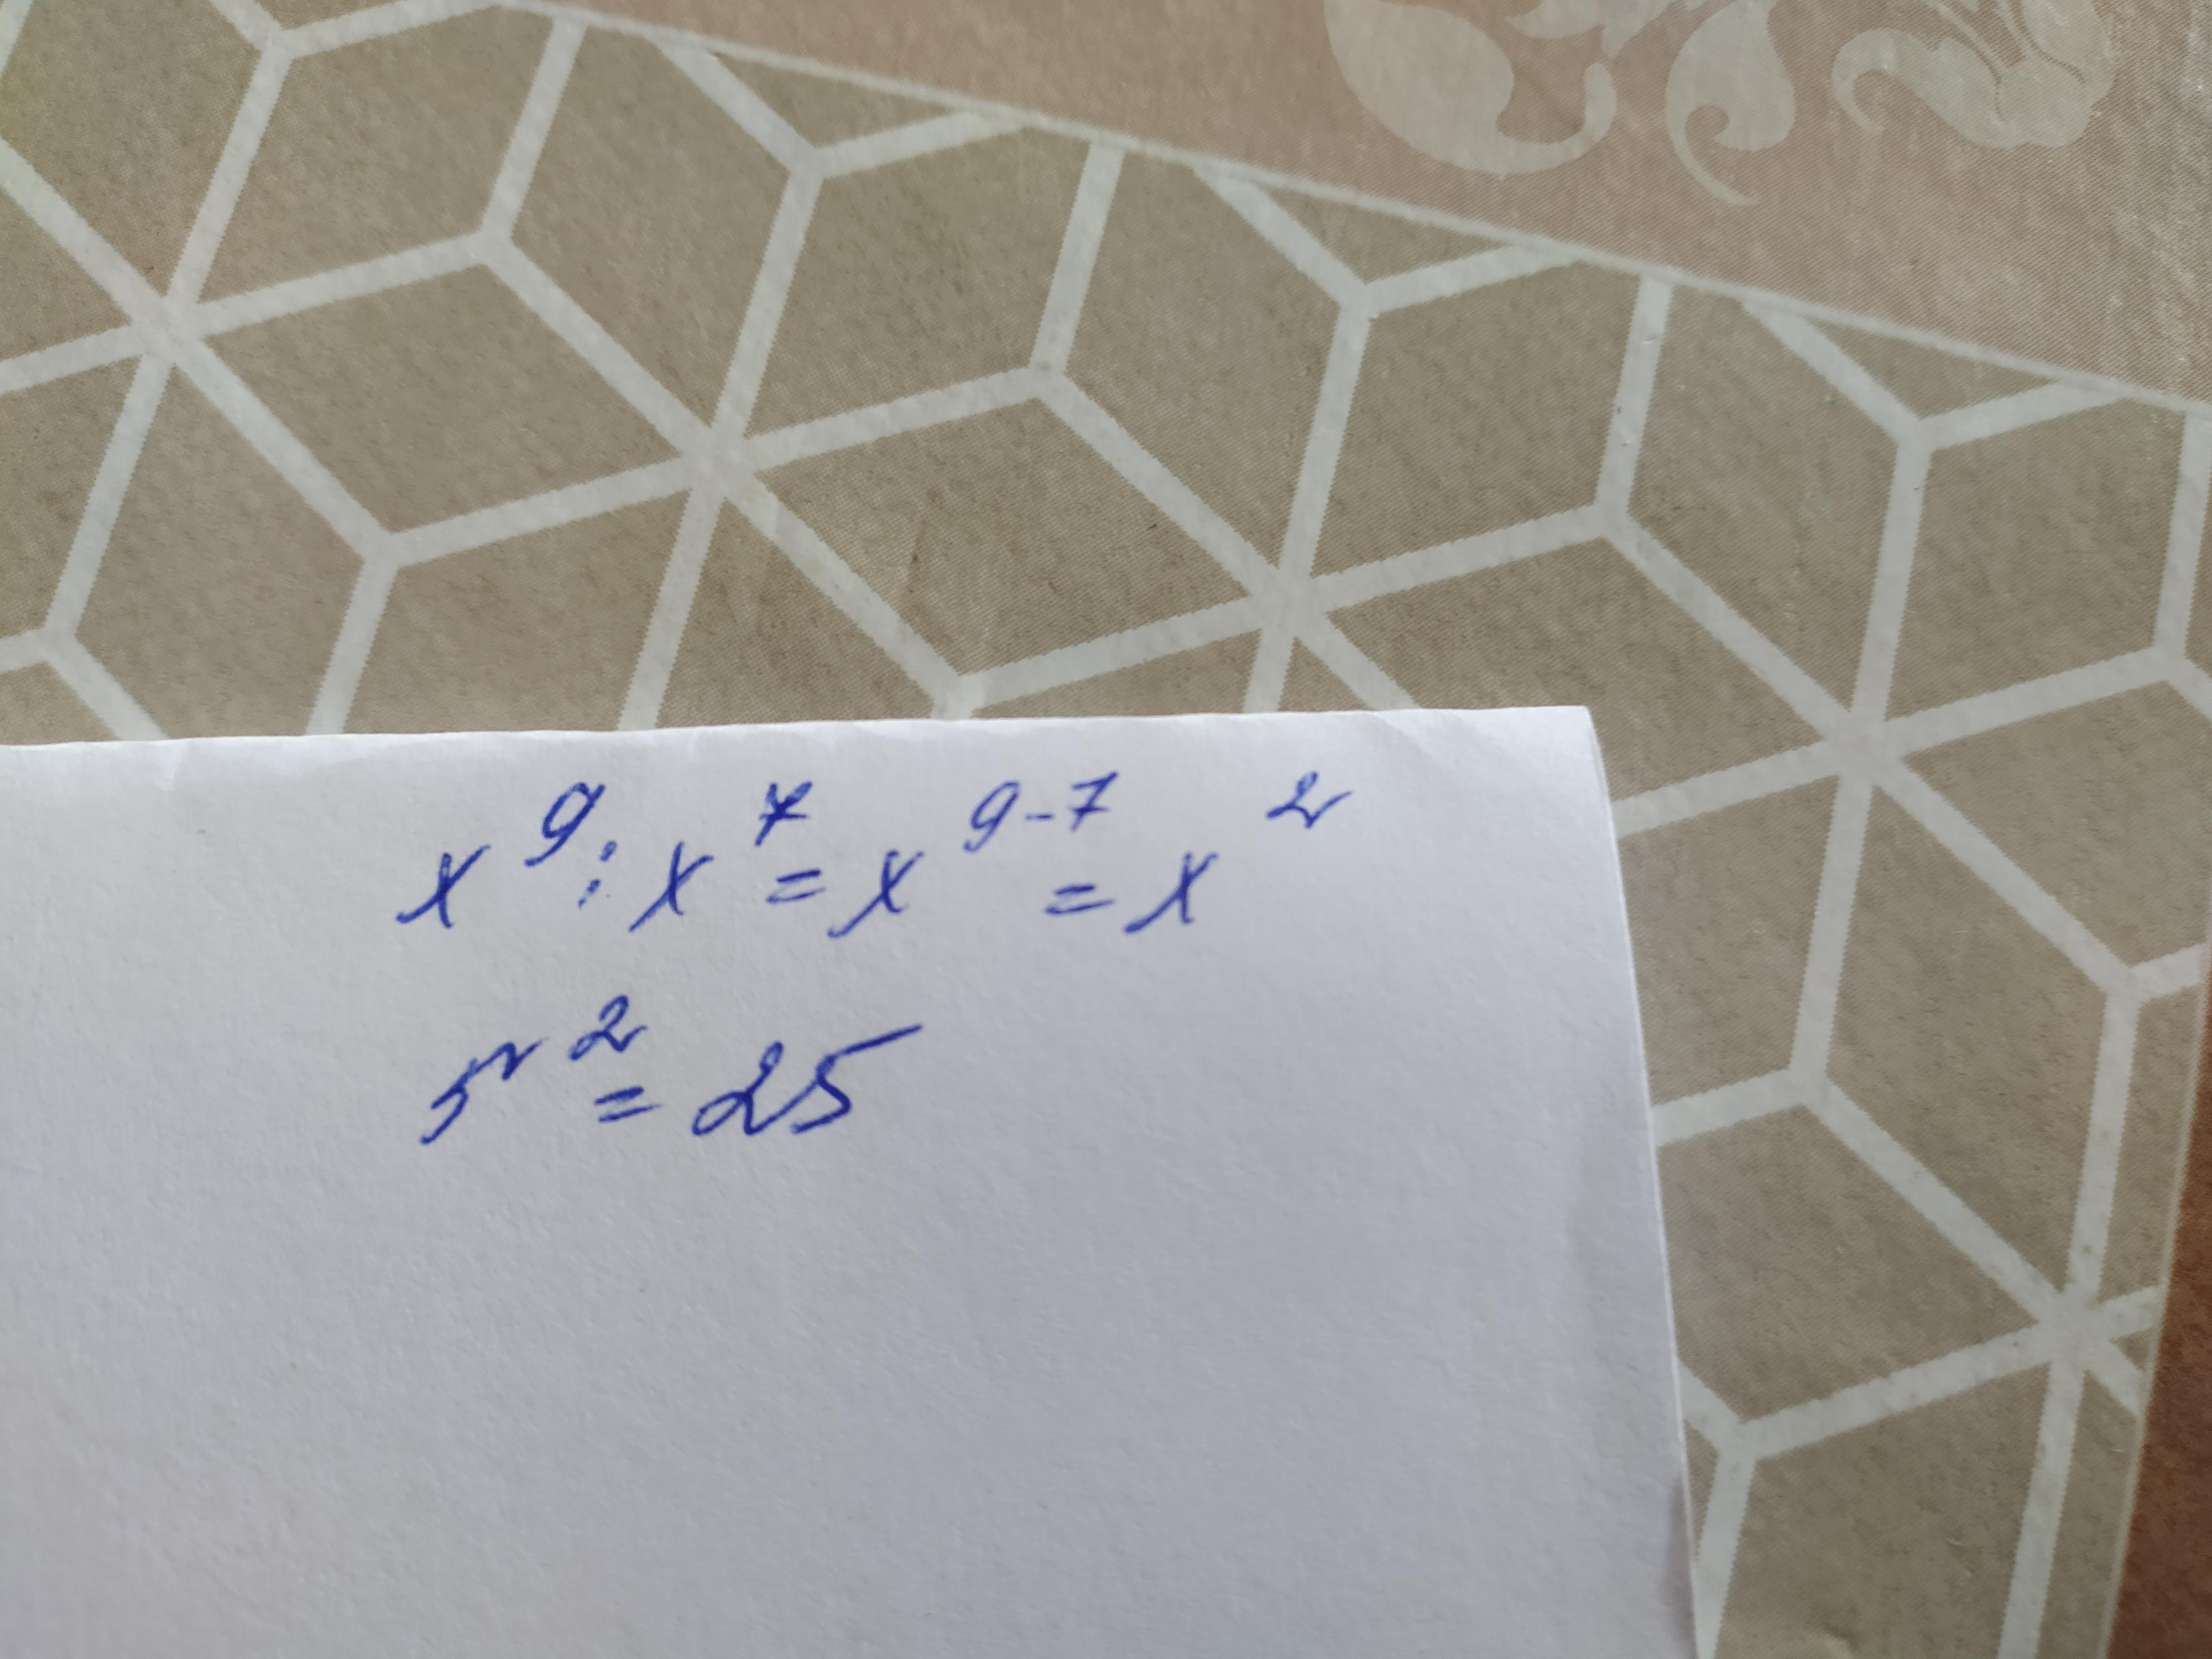 x⁹ : x⁷ = x⁹⁻⁷ = x²
5² = 25